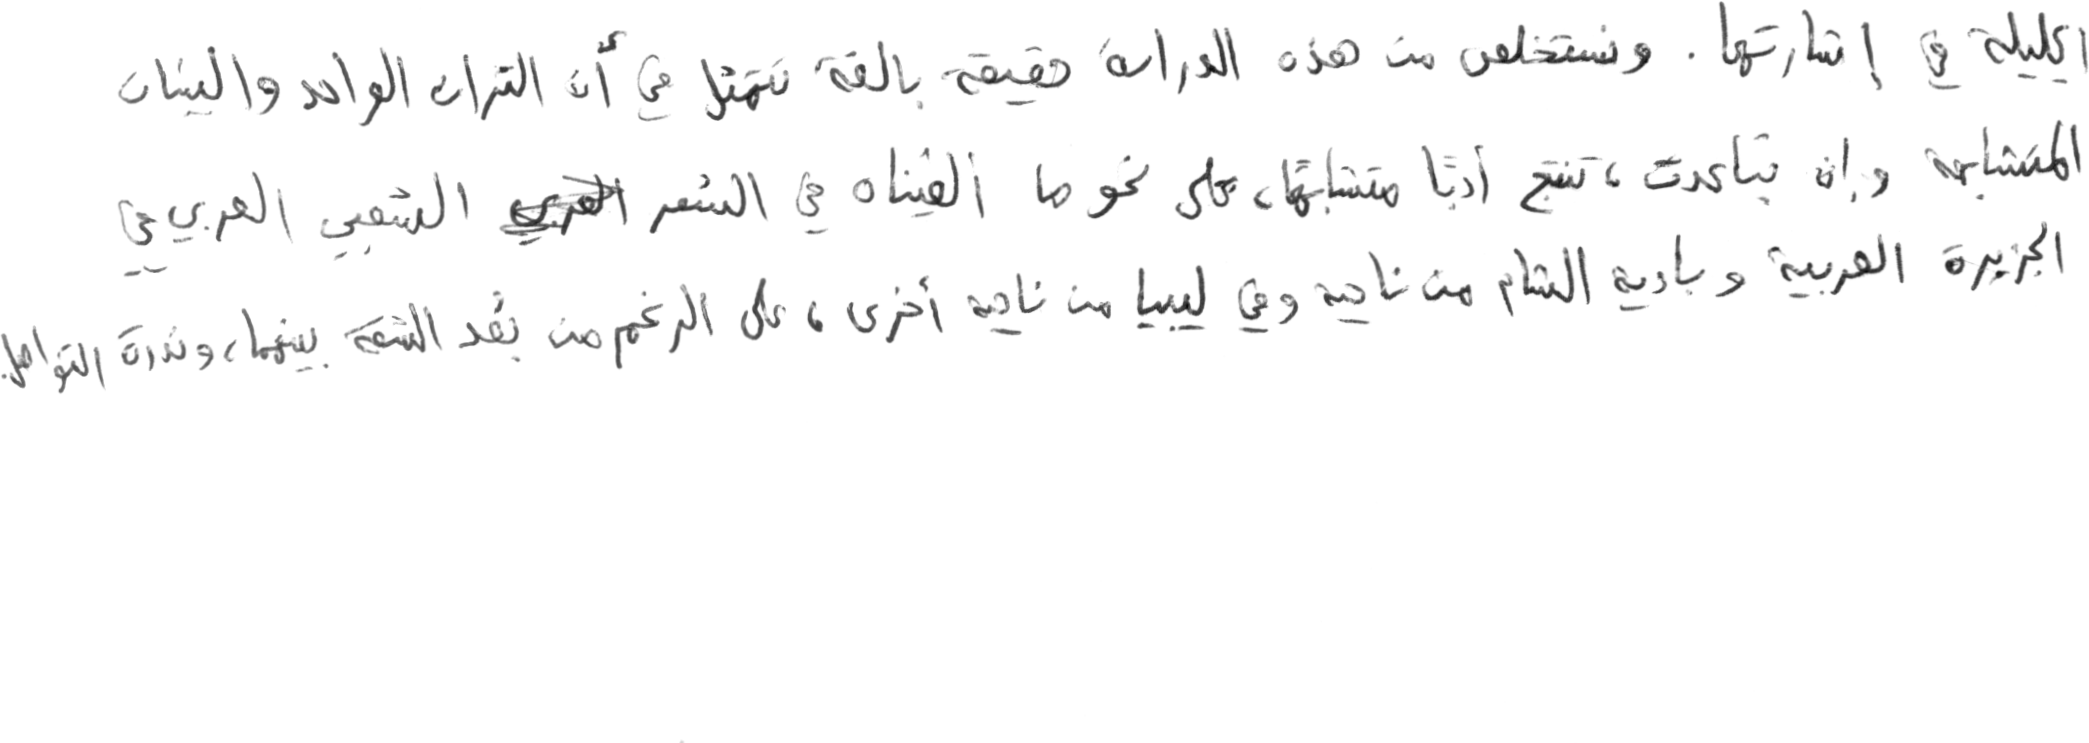 الجليلة في إشارتها. ونستخلص من هذه الدراسة حقيقة بالغة تتمثل في أن التراث الواحد والبيئات
المتشابهة وإن تباعدت، تنتج أدبًا متشابهًا، على نحو ما ألفيناه في الشعر العربي الشعبي العربي في
الجزيرة العربية وبادية الشام من ناحية وفي ليبيا من ناحية أخرى، على الرغم من بُعد الشقة بينهما، وندرة التواصل.